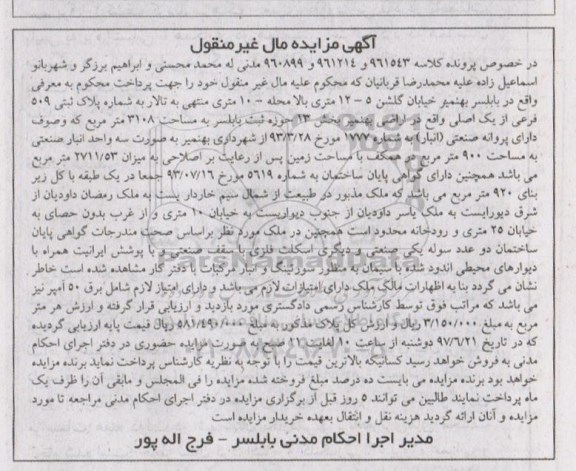 آگهی مزایده مال غیرمنقول
در خصوص پرونده کلاسه ۹۶۱۵۴۳ و ۹۶۱۲۱۴ و ۹۶۰۸۹۹ مدنی له محمد محسنی و ابراهیم برزگر و شهربانو
اسماعیل زاده علیه محمدرضا قربانیان که محکوم علیه مال غیر منقول خود را جهت پرداخت محکوم به معرفی
واقع در بابلسر بهنمیر خیابان گلشن ۵ - ۱۲ متری بالا محله - ۱۰ متری منتهی به تالار به شماره پلاک ثبتی ۵۰۹
فرعی از یک اصلی واقع در اراضی بهنمیر بخش ۱۳ حوزه ثبت بابلسر به مساحت ۳۱۰۸ متر مربع که وصوف
دارای پروانه صنعتی (انبار) به شماره ۱۷۷۷ مورخ ۹۳/۳/۲۸ از شهرداری بهنمیر به صورت سه واحد انبار صنعتی
به مساحت ۹۰۰ متر مربع در همکف با مساحت زمین پس از رعایت بر اصلاحی به میزان ۲۷۱۱/۵۳ متر مربع
می باشد همچنین دارای گواهی پایان ساختمان به شماره ۵۶۱۹ مورخ ۹۳/۰۷/۱۶ جمعا در یک طبقه با کل زیر
بنای ۹۲۰ متر مربع می باشد که ملک مذبور در طبیعت از شمال سیم خاردار پست به ملک رمضان داودیان از
شرق دیوارایست به ملک یاسر داودیان از جنوب دیواریست به خیابان ۱۰ متری و از غرب بدون حصای به
خیابان ۲۵ متری و رودخانه محدود است همچنین در ملک مورد نظر براساس صحت مندرجات گواهی پایان
ساختمان دو عدد سوله یکی صنعتی و دیگری اسکلت فلزی با سقف صنعتی و با پوشش ایرانیت همراه با
دیوارهای محیطی اندود شده با سیمان به منظور سورتینگ و انبار مرکبات با دفتر کار مشاهده شده است خاطر
نشان می گردد بنا به اظهارات مالک ملک دارای امتیازات لازم می باشد و دارای امتیاز لازم شامل برق ۵۰ آمپر نیز
می باشد که مراتب فوق توسط کارشناس رسمی دادگستری مورد بازدید و ارزیابی قرار گرفته و ارزش هر متر
مربع به مبلغ ۳/۱۵۰/۰۰۰ ریال و ارزش کل پلاک مذکور به مبلغ ۵۸۱/۴۹۰/۰۰۰ ریال قیمت پایه ارزیابی گردیده
که در تاریخ ۹۷/۶/۲۱ دوشنبه از ساعت ۱۰ لغایت ۱۱ صبح به صورت مزایده حضوری در دفتر اجرای احکام
مدنی به فروش خواهد رسید کسانیکه بالاترین قیمت را با توجه به نظریه کارشناس پرداخت نماید برنده مزایده
خواهد بود برنده مزایده می بایست ده درصد مبلغ فروخته شده مزایده را فی المجلس و مابقی آن را ظرف یک
ماه پرداخت نمایند طالبین می توانند ۵ روز قبل از برگزاری مزایده در دفتر اجرای احکام مدنی مراجعه تا مورد
مزایده و آنان ارائه گردید هزینه نقل و انتقال بعهده خریدار مزایده است
مدیر اجرا احکام مدنی بابلسر - فرج اله پور